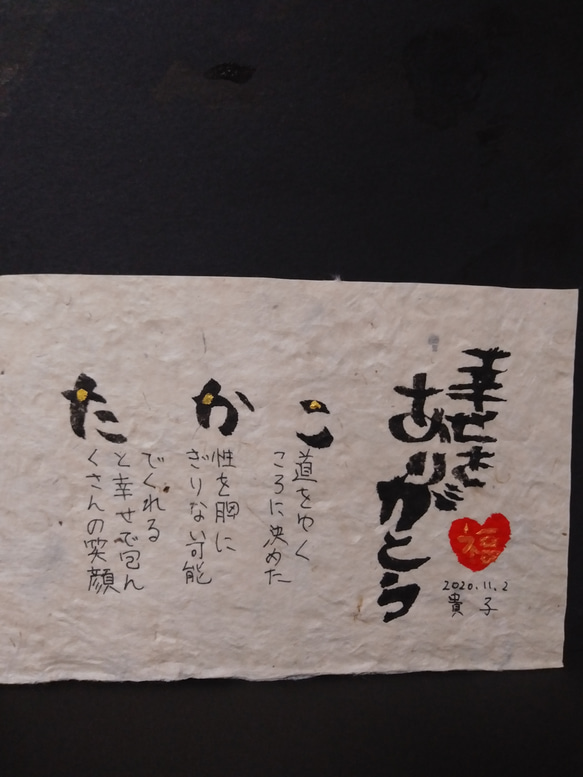 幸せを
ありがとう
福
2020.11.2
貴子
た
くさんの笑顔
と幸せで包ん
でくれる
か
ぎりない可能
性を胸に
こ
ころに決めた
道をゆく